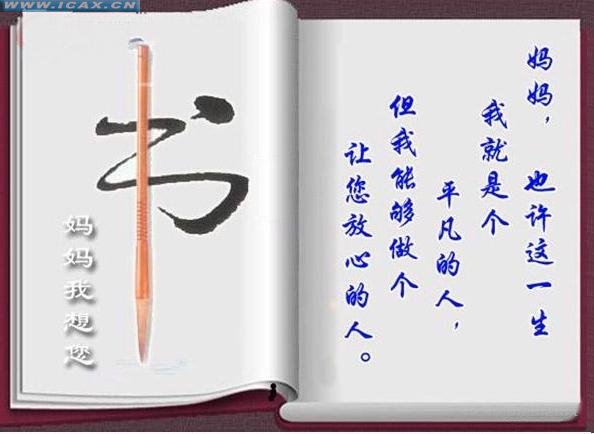 WWW.ICAX.CN
书
妈妈我想您
妈妈，也许这一生
我就是个
平凡的人，
但我能够做个
让您放心的人。